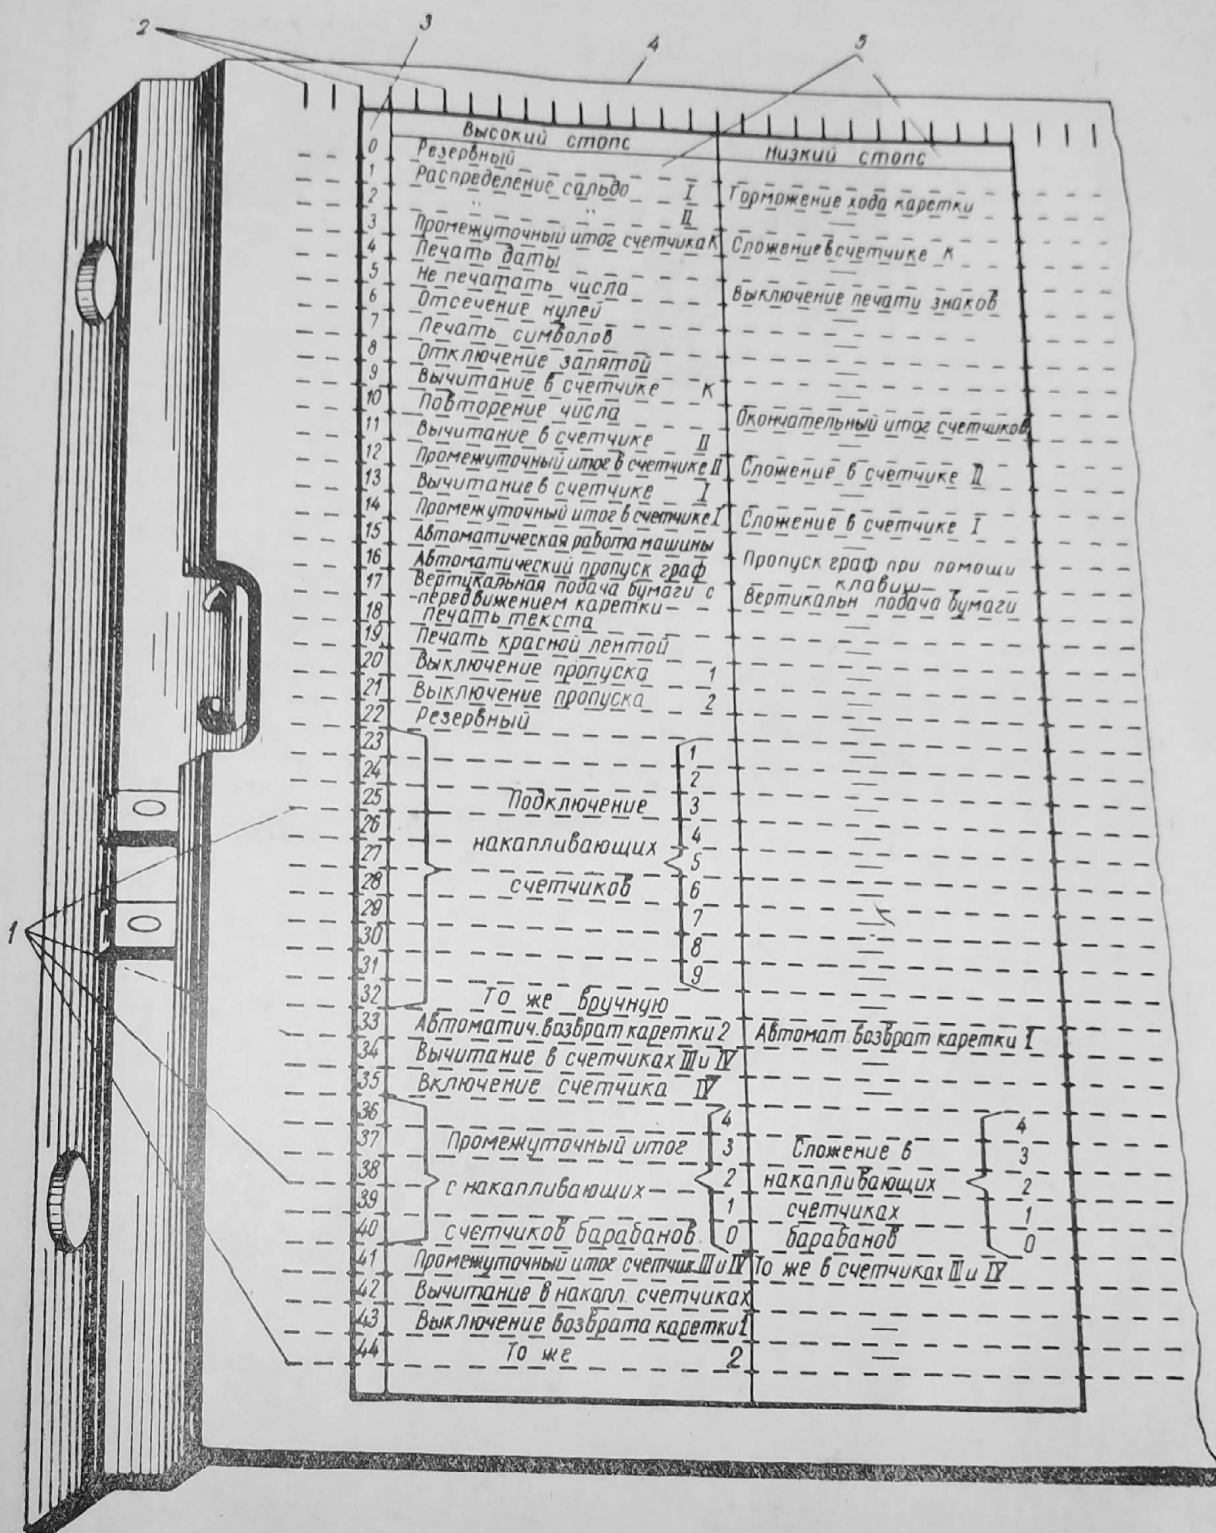 2 3 4 5
Высокий стопс Низкий стопс
0 Резервный
1 Распределение сальдо I Торможение хода каретки
2 " " II —
3 Промежуточный итог счетчика К Сложение в счетчике К
4 Печать даты —
5 Не печатать числа Выключение печати знаков
6 Отсечение нулей —
7 Печать символов —
8 Отключение запятой —
9 Вычитание в счетчике К —
10 Повторение числа Окончательный итог счетчиков
11 Вычитание в счетчике II —
12 Промежуточный итог в счетчике II Сложение в счетчике II
13 Вычитание в счетчике I —
14 Промежуточный итог в счетчике I Сложение в счетчике I
15 Автоматическая работа машины —
16 Автоматический пропуск граф Пропуск граф при помощи клавиш
17 Вертикальная подача бумаги с передвижением каретки Вертикальн подача бумаги
18 печать текста —
19 Печать красной лентой —
20 Выключение пропуска 1 —
21 Выключение пропуска 2 —
22 Резервный —
23 1 —
24 2 —
25 Подключение 3 —
26 4 —
27 накапливающих 5 —
28 счетчиков 6 —
29 7 —
30 8 —
31 9 —
32 То же вручную —
33 Автоматич. возврат каретки 2 Автомат. возврат каретки I
34 Вычитание в счетчиках III и IV —
35 Включение счетчика IV —
36 4 4
37 Промежуточный итог 3 Сложение в 3
38 с накапливающих 2 накапливающих 2
39 1 счетчиках 1
40 счетчиков барабанов 0 барабанов 0
41 Промежуточный итог счетчик. III и IV То же в счетчиках III и IV
42 Вычитание в накапл. счетчиках
43 Выключение возврата каретки 1 —
44 То же 2 —
1